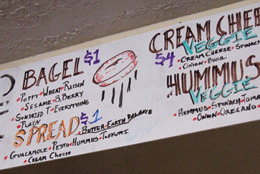 BAGEL $1
• POPPY • WHEAT • RAISIN
• SESAME • BERRY
SUNDRIED T • EVERYTHING
• PLAIN
SPREADS $1
BUTTER • EARTH BALANCE
GUACAMOLE • PESTO • HUMMUS • TOFUTTI
• CREAM CHEESE
CREAM CHEE
VEGGIE
$4 • CREAM CHEESE • SPINACH
• ONION
HUMMUS
VEGGIE
• HUMMUS • SPINACH • TOMA
• ONION • OREGANO